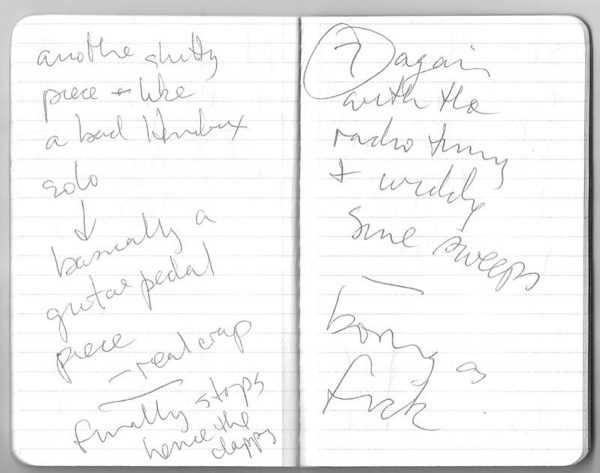 another shitty
piece - like
a bad Hendrix
solo
↓
basically a
guitar pedal
piece
- real crap
finally stops
hence the
clapping
7 again
with the
radio tuning
+ widdly
sine sweeps
—
boring as
fuck